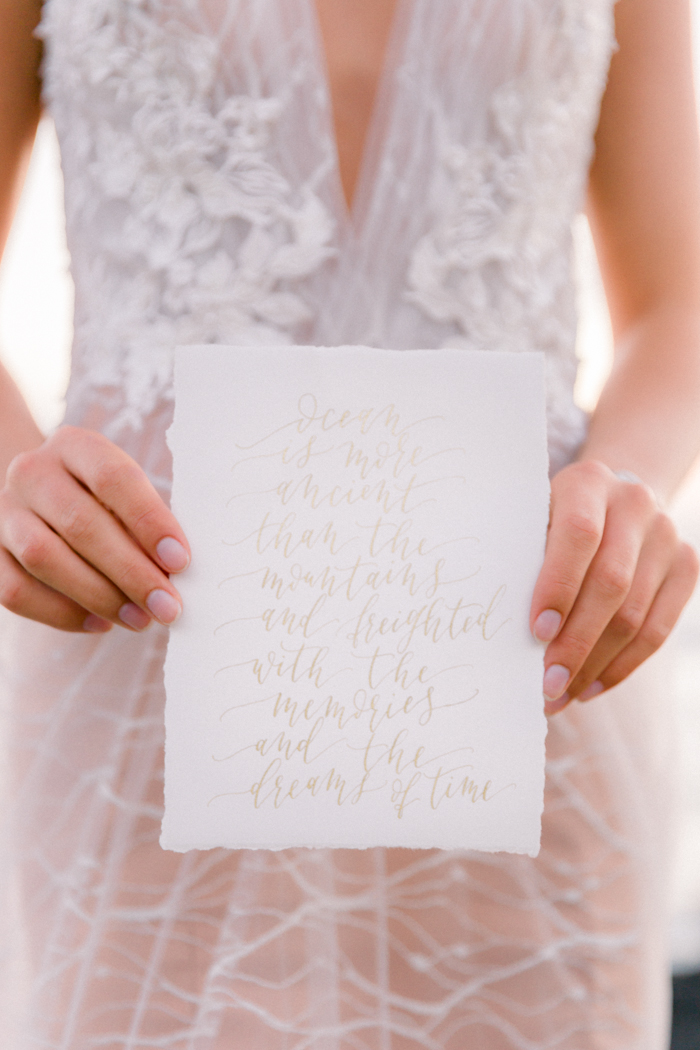 Ocean
is more
ancient
than the
mountains
and freighted
with the
memories
and the
dreams of time